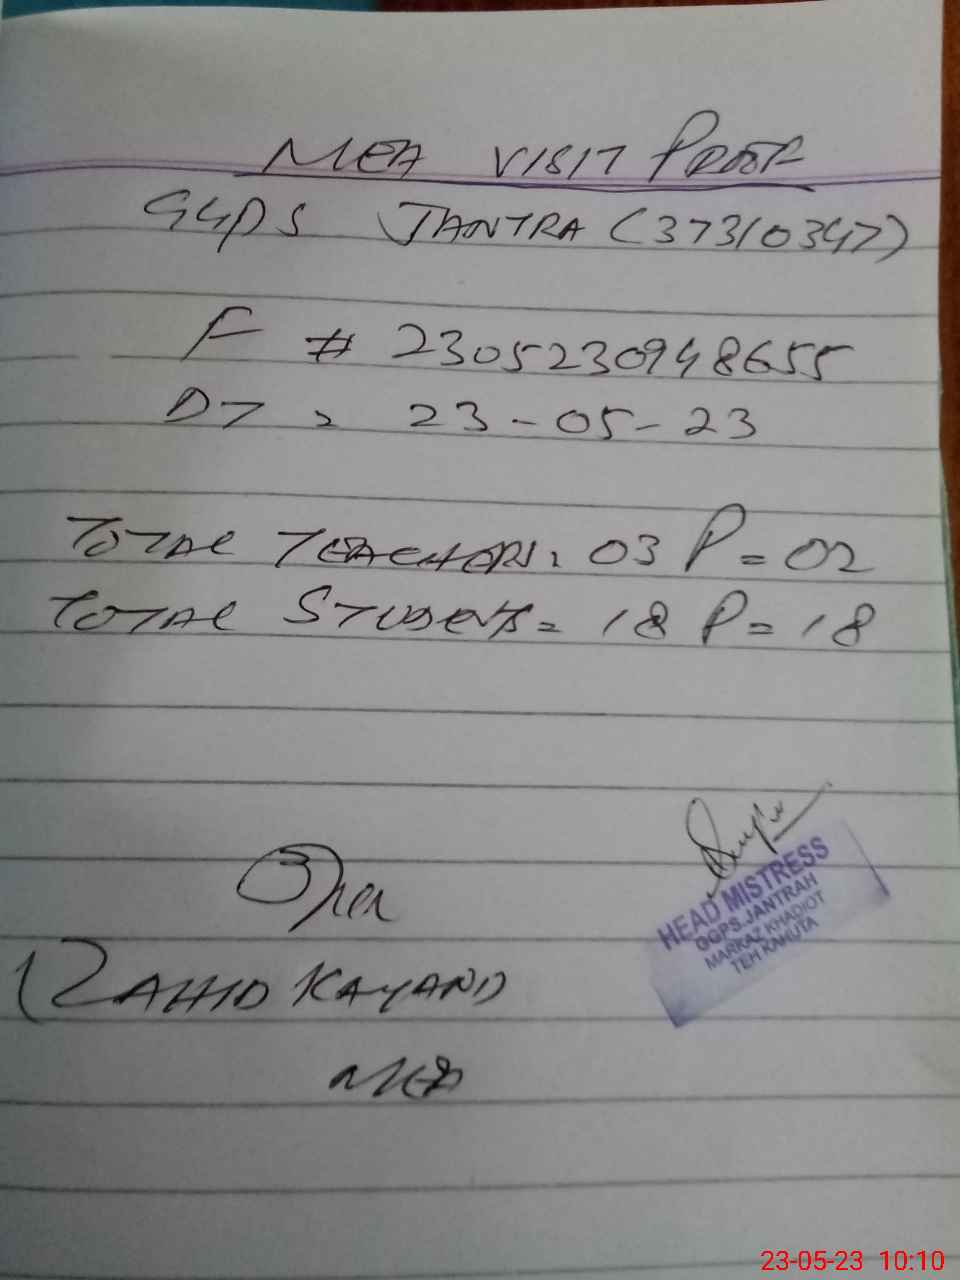 MEA VISIT PROOF
GGPS JANTRA (37310347)
F # 2305230948655
DT = 23-05-23
TOTAL TEACHERS = 03 P = 02
TOTAL STUDENTS = 18 P = 18
HEAD MISTRESS
GGPS JANTRAH
MARKAZ KHADIOT
TEH KAHUTA
ZAHID KAYANI)
MEA
23-05-23 10:10